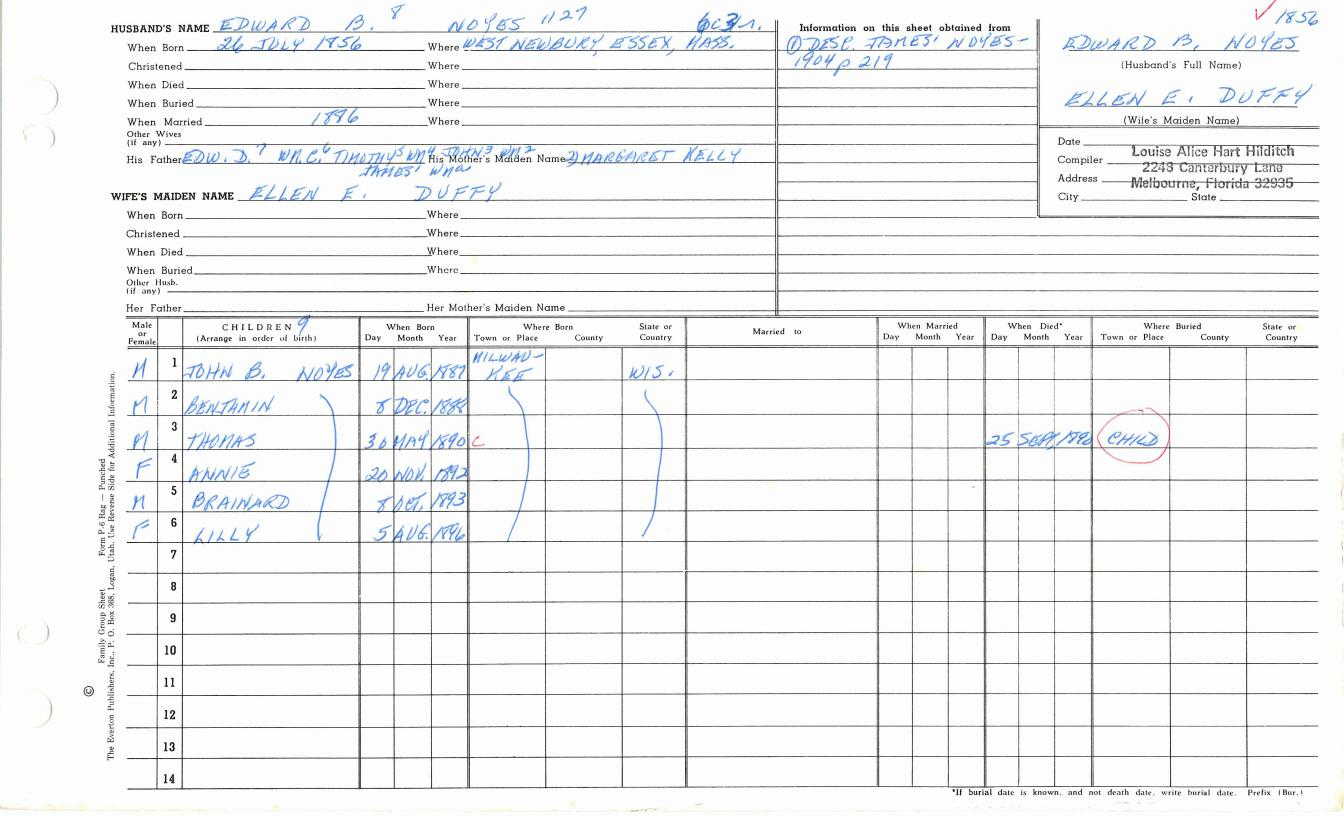 ✓ 1856
HUSBAND'S NAME EDWARD B. 8 NOYES 1127
When Born 26 JULY 1856 Where WEST NEWBURY, ESSEX, MASS.
Christened Where
When Died Where
When Buried Where
When Married 1886 Where
Other Wives
(if any)
His Father EDW. D.7 WM. C.6 TIMOTHY5 WM4 JOHN3 WM2 His Mother's Maiden Name MARGARET KELLY
JAMES1 WMa
WIFE'S MAIDEN NAME ELLEN E. DUFFY
When Born Where
Christened Where
When Died Where
When Buried Where
Other Husb.
(if any)
Her Father Her Mother's Maiden Name
Information on this sheet obtained from
① DESC. JAMES1 NOYES-
1904 p 219
EDWARD B. NOYES
(Husband's Full Name)
ELLEN E. DUFFY
(Wife's Maiden Name)
Date
Compiler Louise Alice Hart Hilditch
2243 Canterbury Lane
Address Melbourne, Florida 32935
City State
Male or Female CHILDREN 9 When Born Where Born State or Country Married to When Married When Died* Where Buried State or Country
(Arrange in order of birth) Day Month Year Town or Place County Day Month Year Day Month Year Town or Place County
M 1 JOHN B. NOYES 19 AUG. 1887 MILWAU-KEE WIS.
M 2 BENJAMIN 8 DEC. 1888
M 3 THOMAS 30 MAY 1890 C 25 SEPT. 1890 CHILD
F 4 ANNIE 20 NOV. 1892
M 5 BRAINARD 8 OCT. 1893
F 6 LILLY 5 AUG. 1896
7
8
9
10
11
12
13
14
*If burial date is known, and not death date, write burial date. Prefix (Bur.)
Family Group Sheet Form P-6 Rag — Punched
© The Everton Publishers, Inc., P. O. Box 368, Logan, Utah. Use Reverse Side for Additional Information.